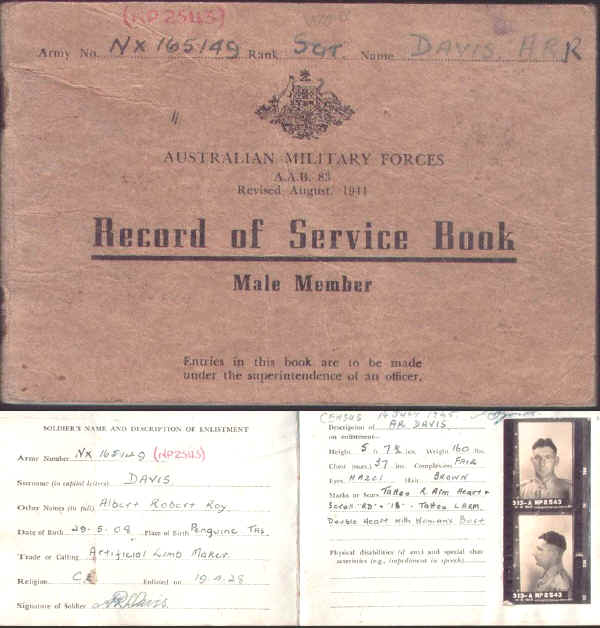 (NP2543)
Army No. NX 165149 Rank SGT. Name DAVIS. A.R.R
AUSTRALIAN MILITARY FORCES
A.A.B. 83
Revised August, 1944
Record of Service Book
Male Member
Entries in this book are to be made
under the superintendence of an officer.
SOLDIER'S NAME AND DESCRIPTION OF ENLISTMENT
Army Number NX 165149 (NP2543)
Surname (in capital letters) DAVIS
Other Names (in full) Albert Robert Roy.
Date of Birth 29-5-09 Place of Birth Penguine Tas.
Trade or Calling Artificial Limb Maker
Religion C.E. Enlisted on
Signature of Soldier ARRDavis.
CENSUS 14 JULY 1945.
Description of AR DAVIS.
on enlistment—
Height 5 ft 7¾ ins. Weight 160 lbs.
Chest (ins.) 37 ins. Complexion FAIR
Eyes HAZEL Hair BROWN
Marks or Scars Tattoo R. Arm Heart &
Scroll "RD" & "IB" - Tattoo L ARM.
Double Heart with Woman's Bust
Physical disabilities (if any) and special char-
acteristics (e.g., impediment in speech)
313-A NP2543
313-A NP2543